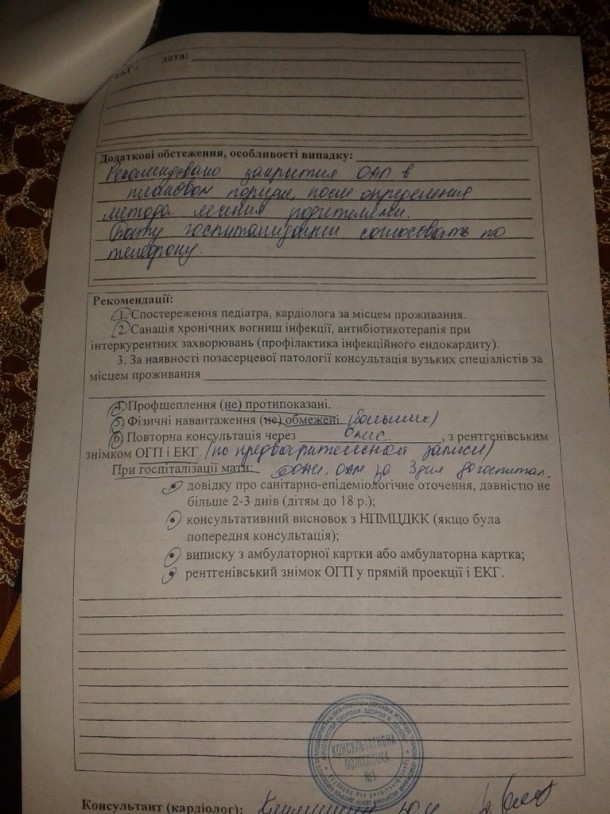 ЕКГ: дата:
Додаткові обстеження, особливості випадку:
Рекомендовано закрытие ОАП в
плановом порядке, после определения
метода лечения родителями.
госпитализации согласовать по
телефону.
Рекомендації:
1. Спостереження педіатра, кардіолога за місцем проживання.
2. Санація хронічних вогнищ інфекції, антибіотикотерапія при
інтеркурентних захворювань (профілактика інфекційного ендокардиту).
3. За наявності позасерцевої патології консультація вузьких спеціалістів за
місцем проживання
4. Профщеплення (не) протипоказані.
5. Фізичні навантаження (не) обмежені (большие)
6. Повторна консультація через 6 мес , з рентгенівським
знімком ОГП і ЕКГ. (по предварительной записи)
При госпіталізації мати: ОАК, ОАМ за 3 дня до госпитал.
довідку про санітарно-епідеміологічне оточення, давністю не
більше 2-3 днів (дітям до 18 р.);
консультативний висновок з НПМЦДКК (якщо була
попередня консультація);
виписку з амбулаторної картки або амбулаторна картка;
рентгенівський знімок ОГП у прямій проекції і ЕКГ.
КОНСУЛЬТАТИВНА
ПОЛІКЛІНІКА
№1
Консультант (кардіолог):